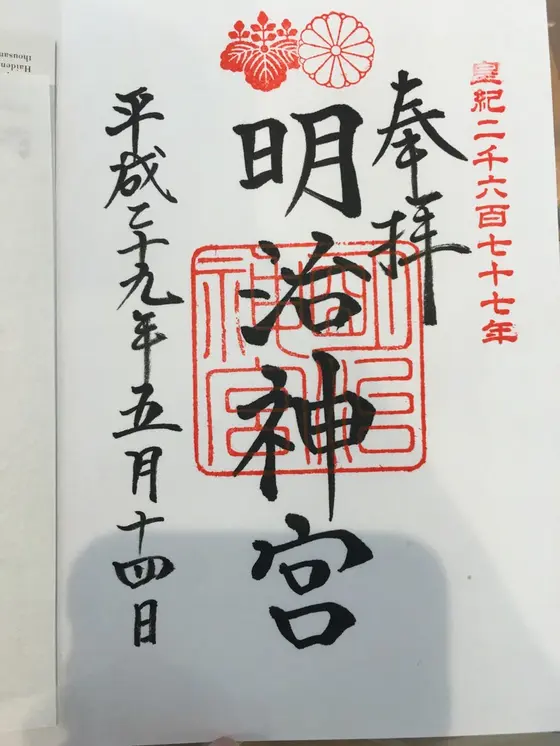 皇紀二千六百七十七年
奉拝
明治神宮
明治神宮
平成二十九年五月十四日
Haiden
thousan